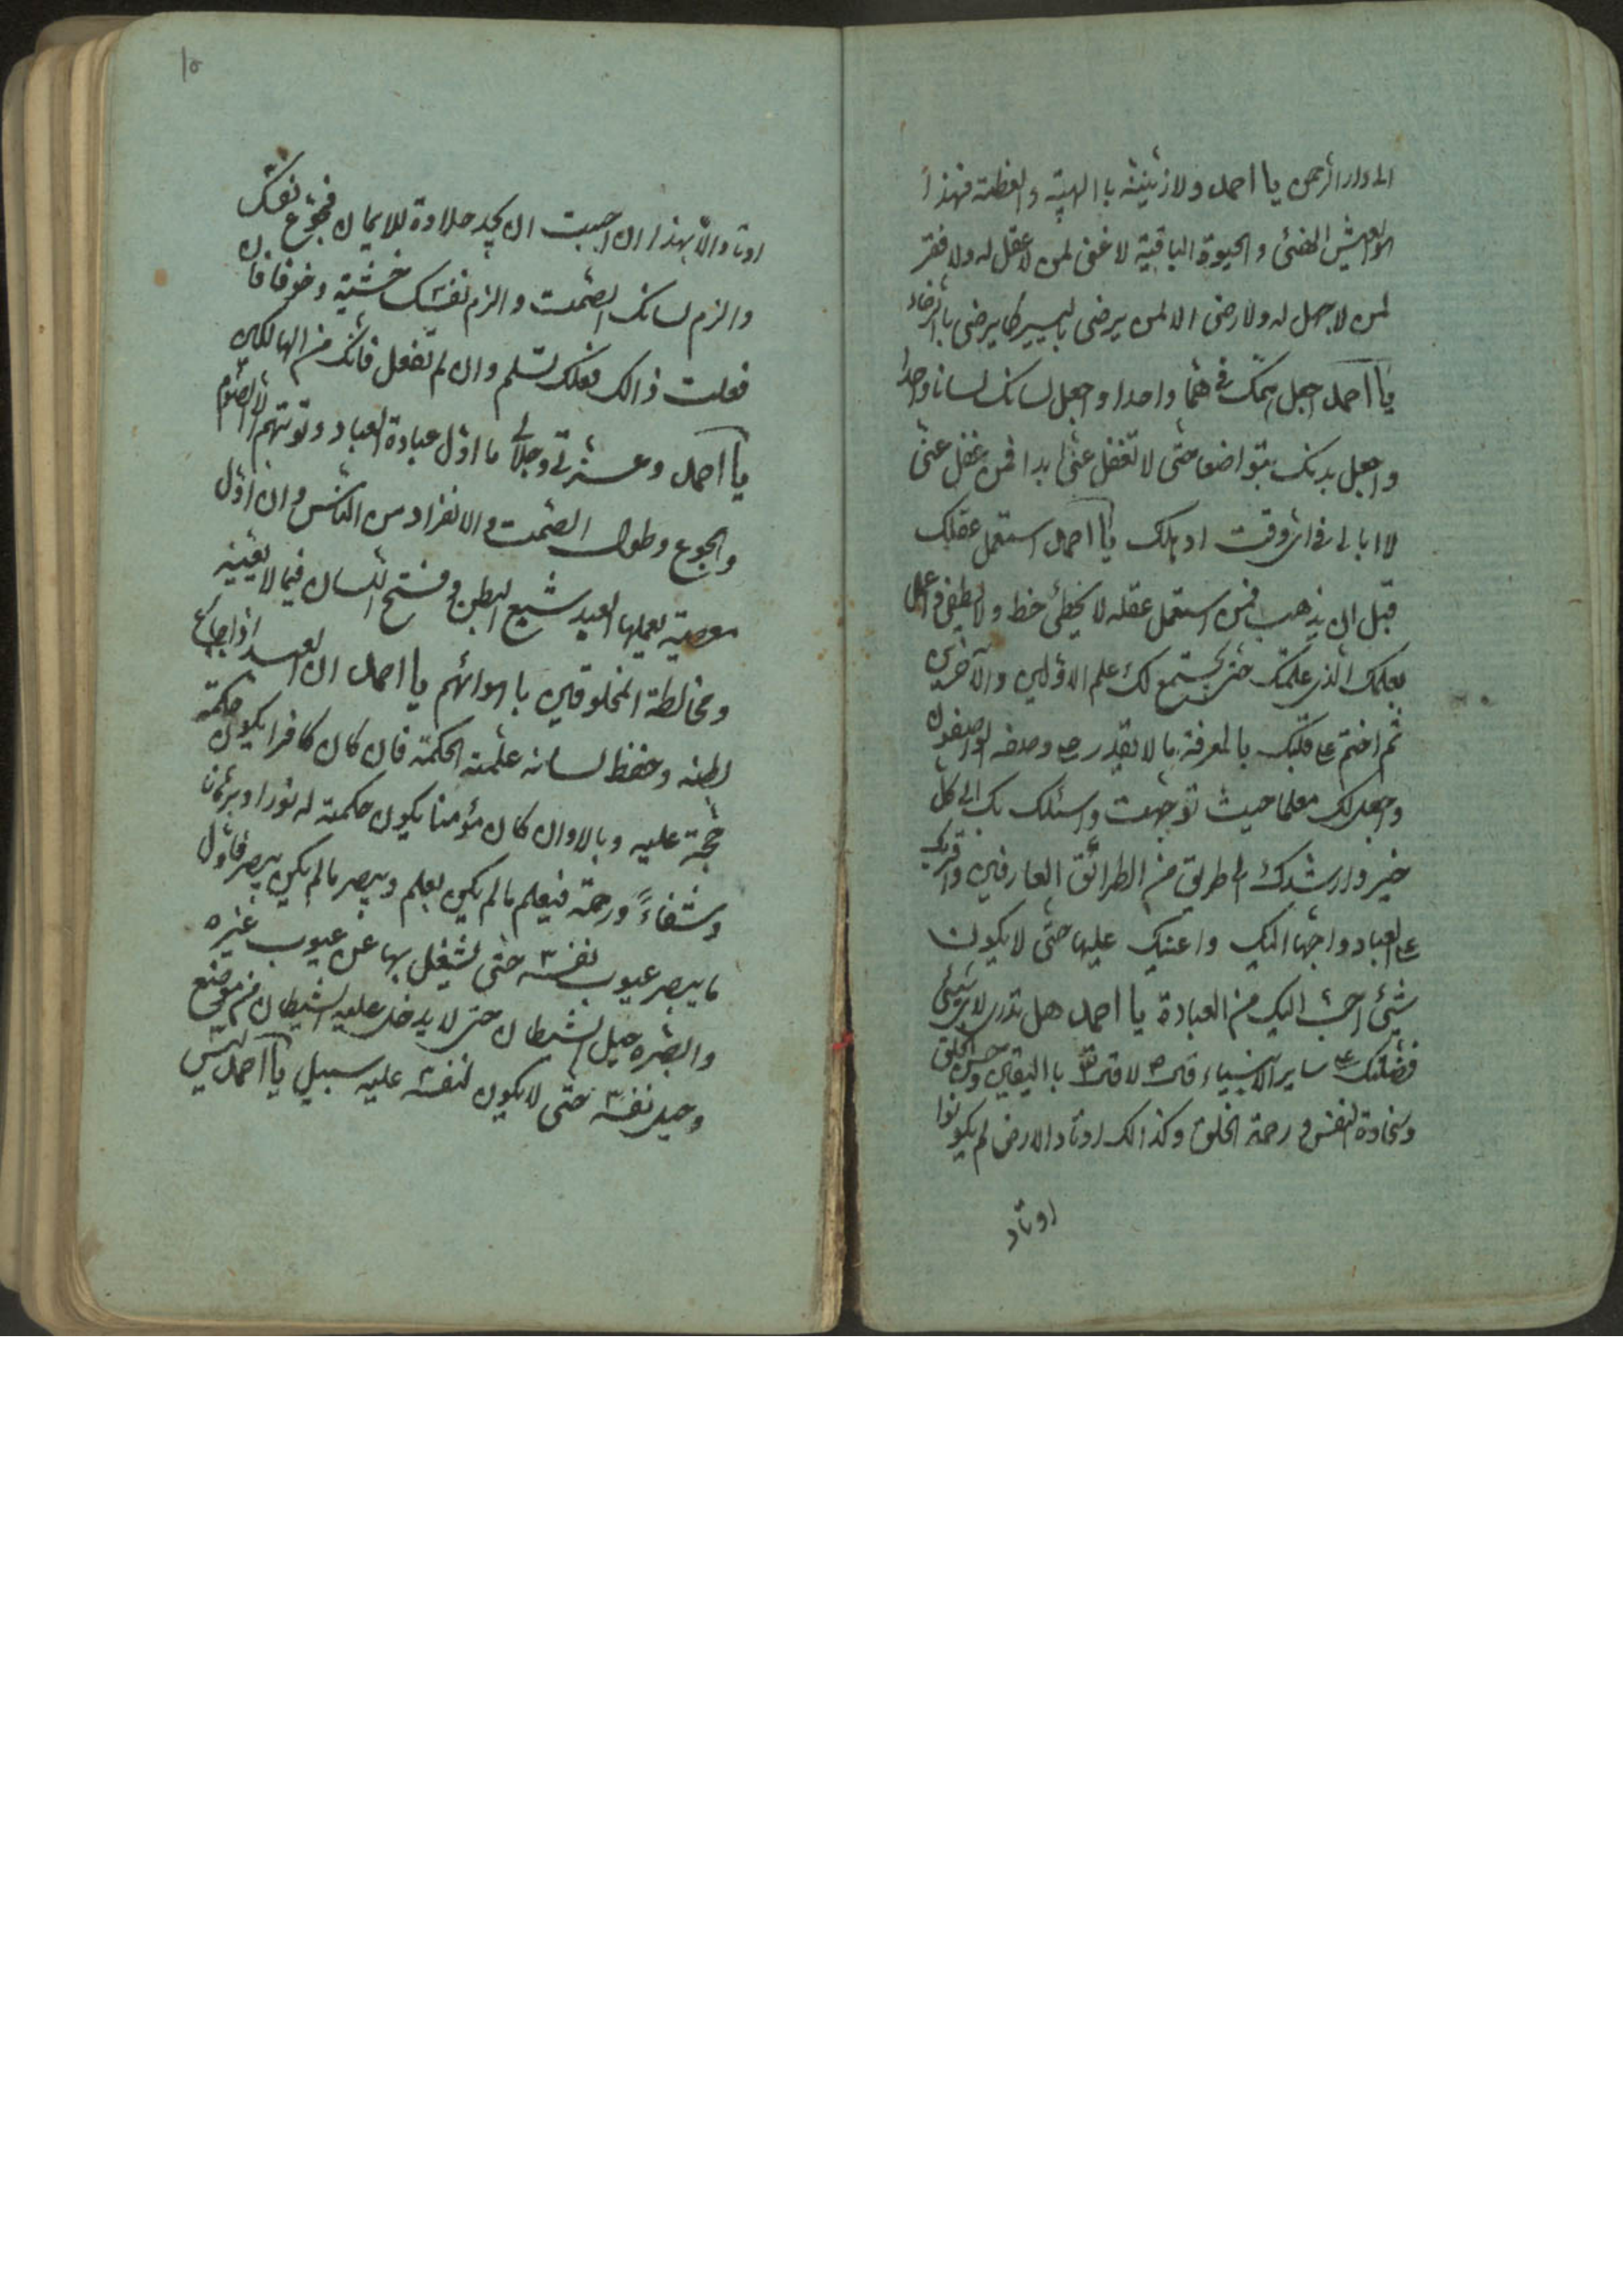 الى دار الرحمن يا احمد ولازيننه با الهيبة والعظمة فهذا
هو العيش الهنئ والحيوة الباقية لا غنى لمن لا عقل له ولا فقر
لمن لا جهل له ولا رضى الا لمن يرضى باليسير كما يرضى بالرخاء
يا احمد اجعل همك فى هما واحدا واجعل لسانك لسانا واحدا
واجعل بدنك بتواضعا حتى لا تغفل عنى ابدا فمن غفل عنى
لا ابالى فى اى وقت اد يهلك يا احمد استعمل عقلك
قبل ان يذهب فمن استعمل عقله لا يخطئ خط ولا يطغى فى عمل
بعلمك الذى علمتك حتى يجتمع لك علم الاولين والآخرين
ثم اختم على قلبك بالمعرفة ما لا يقدر على وصفه الواصفون
واجعل لك معلما حيث توجهت واسئلك بك الى كل
خير وارشدك الى طريق من الطرائق العارفين واقربك
على العباد واجتهاد اليك واعنيك عليها حتى لا يكون
شيئ احب اليك من العبادة يا احمد هل تدرى لاى شيئ
فضلتك على ساير الانبياء قال ص لا قال تع با اليقين وحسن الخلق
وسخاوة النفس ورحمة الخلق وكذالك اوتاد الارض لم يكونوا
اوتاد
١٥
اوتاد الا بهذا ان احببت ان تجد حلاوة للايمان فجوع نفسك
والزم لسانك الصمت والزم نفسك خشية وخوفا فان
فعلت ذالك فعلك تسلم وان لم تفعل فانك من الهالكين
يا احمد وعزتى وجلالى ما اول عبادة العباد وتوبتهم الا الصوم
والجوع وطول الصمت والانفراد من الناس وان اول
معصية يعملها العبد شبع البطن وفتح اللسان فيما لا يعنيه
ومخالطة المخلوقين با اهوائهم يا احمد ان العبد اذا جاع
بطنه وحفظ لسانه علمته الحكمة فان كان كافرا يكون حكمته
حجة عليه وبالا وان كان مؤمنا يكون حكمته له نورا وبرهانا
وشفاءً ورحمة فيعلم مالم يكن يعلم ويبصر مالم يكن يبصر فاول
ما يبصر عيوب نفسه حتى يشغل بها عن عيوب غيره
وابصره حيل الشيطان حتى لا يدخل عليه الشيطان من موضع
وحيد نفسه حتى لا يكون لنفسه عليه سبيل يا احمد ليس